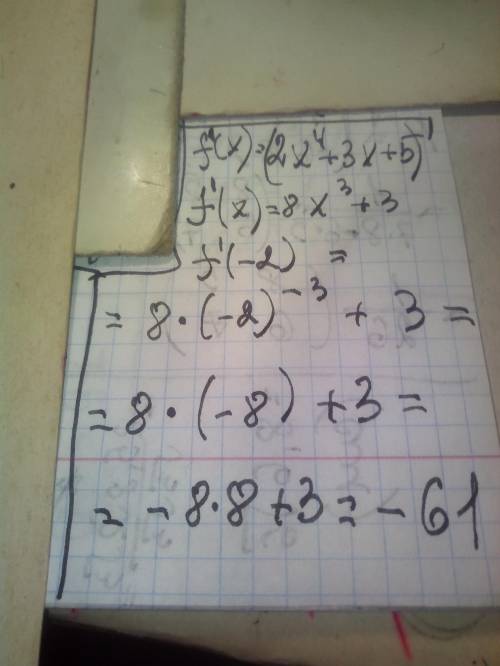 f'(x)=(2x⁴+3x+5)'
f'(x)=8x³+3
f'(-2) =
= 8·(-2)⁻³ + 3 =
= 8·(-8) +3=
= -8·8+3=-61